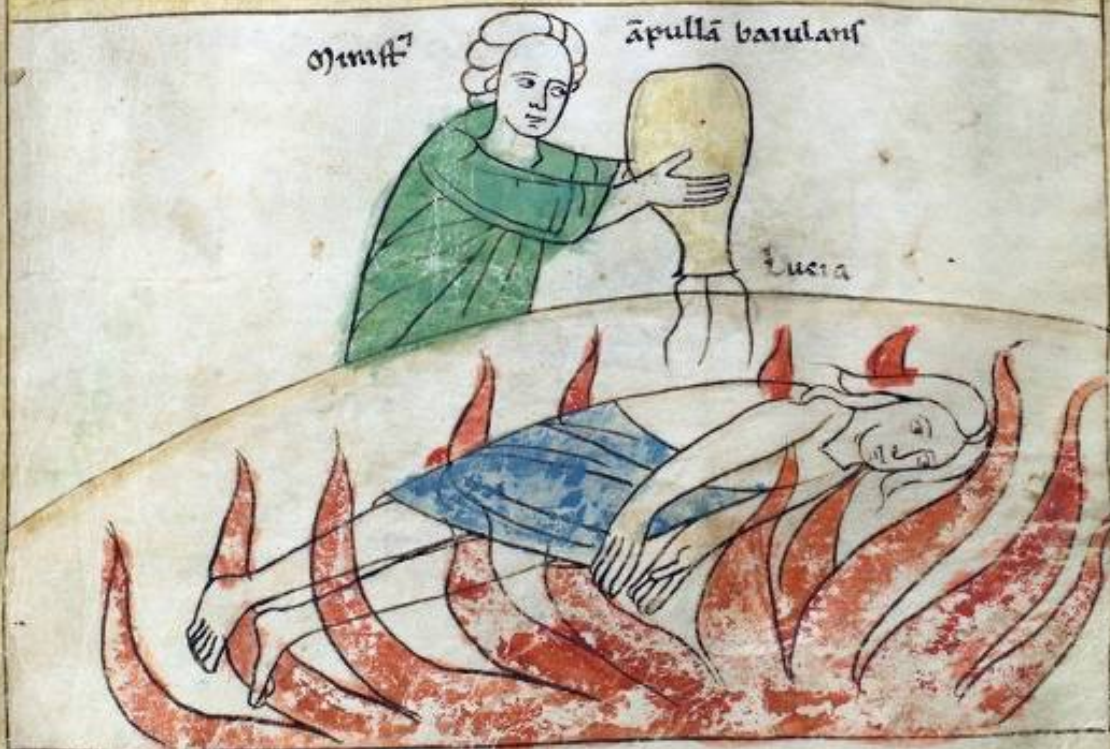 Minist᾽
āpullā baiulans
Lucia